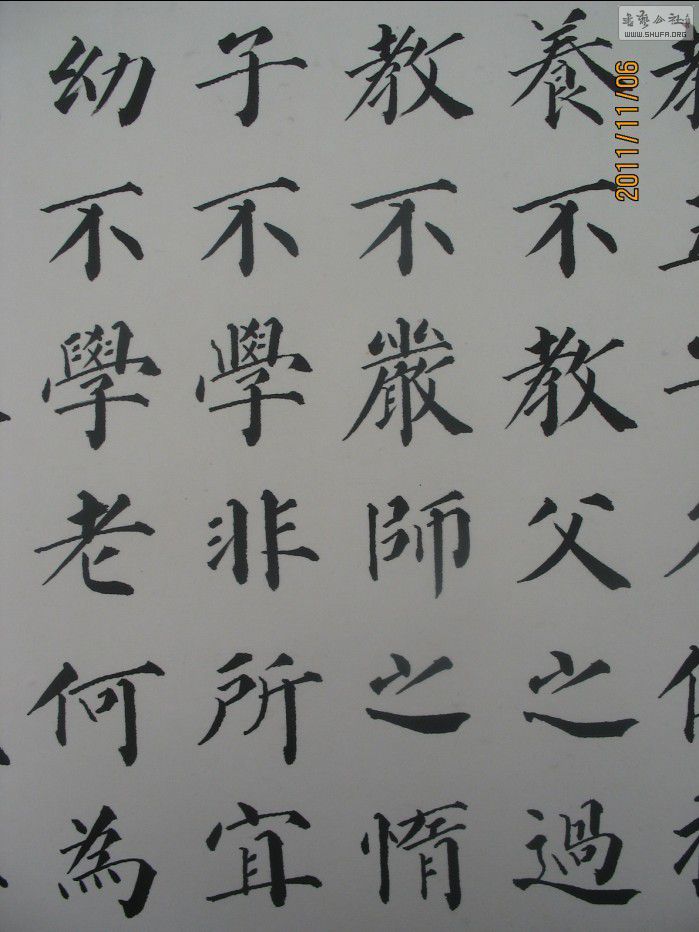 養不教父之過
教不嚴師之惰
子不學非所宜
幼不學老何為
2011/11/06
WWW.SHUFA.ORG